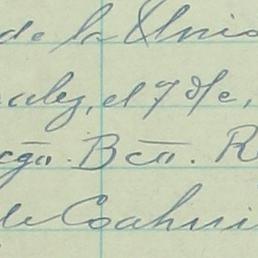 de la Unio
aley, el 7 de,
cgo. Bco. R
de Coahui